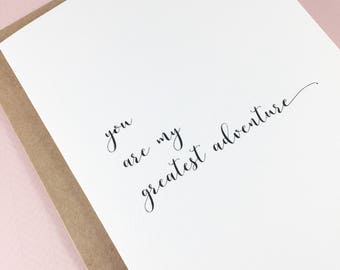 you
are my
greatest adventure